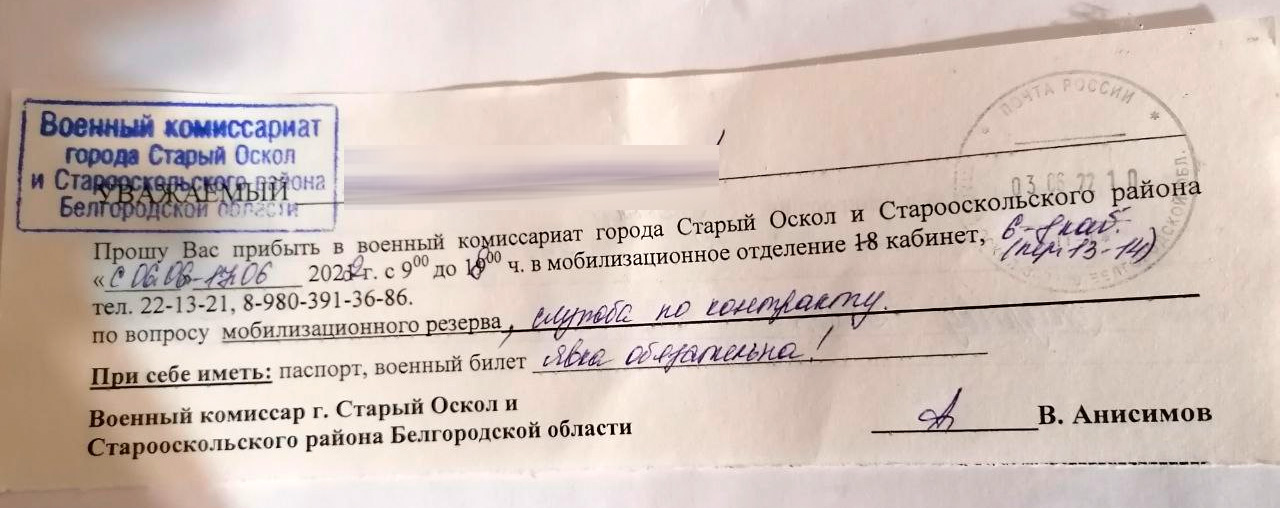 Военный комиссариат
города Старый Оскол
и Старооскольского района
Белгородской области
ПОЧТА РОССИИ
УВАЖАЕМЫЙ
Прошу Вас прибыть в военный комиссариат города Старый Оскол и Старооскольского района
« С 06.06-17.06 2022 г. с 9⁰⁰ до 16⁰⁰ ч. в мобилизационное отделение 18 кабинет, 6-й каб.
(пер. 13-14)
тел. 22-13-21, 8-980-391-36-86.
по вопросу мобилизационного резерва, служба по контракту.
При себе иметь: паспорт, военный билет явка обязательна!
Военный комиссар г. Старый Оскол и
Старооскольского района Белгородской области
В. Анисимов